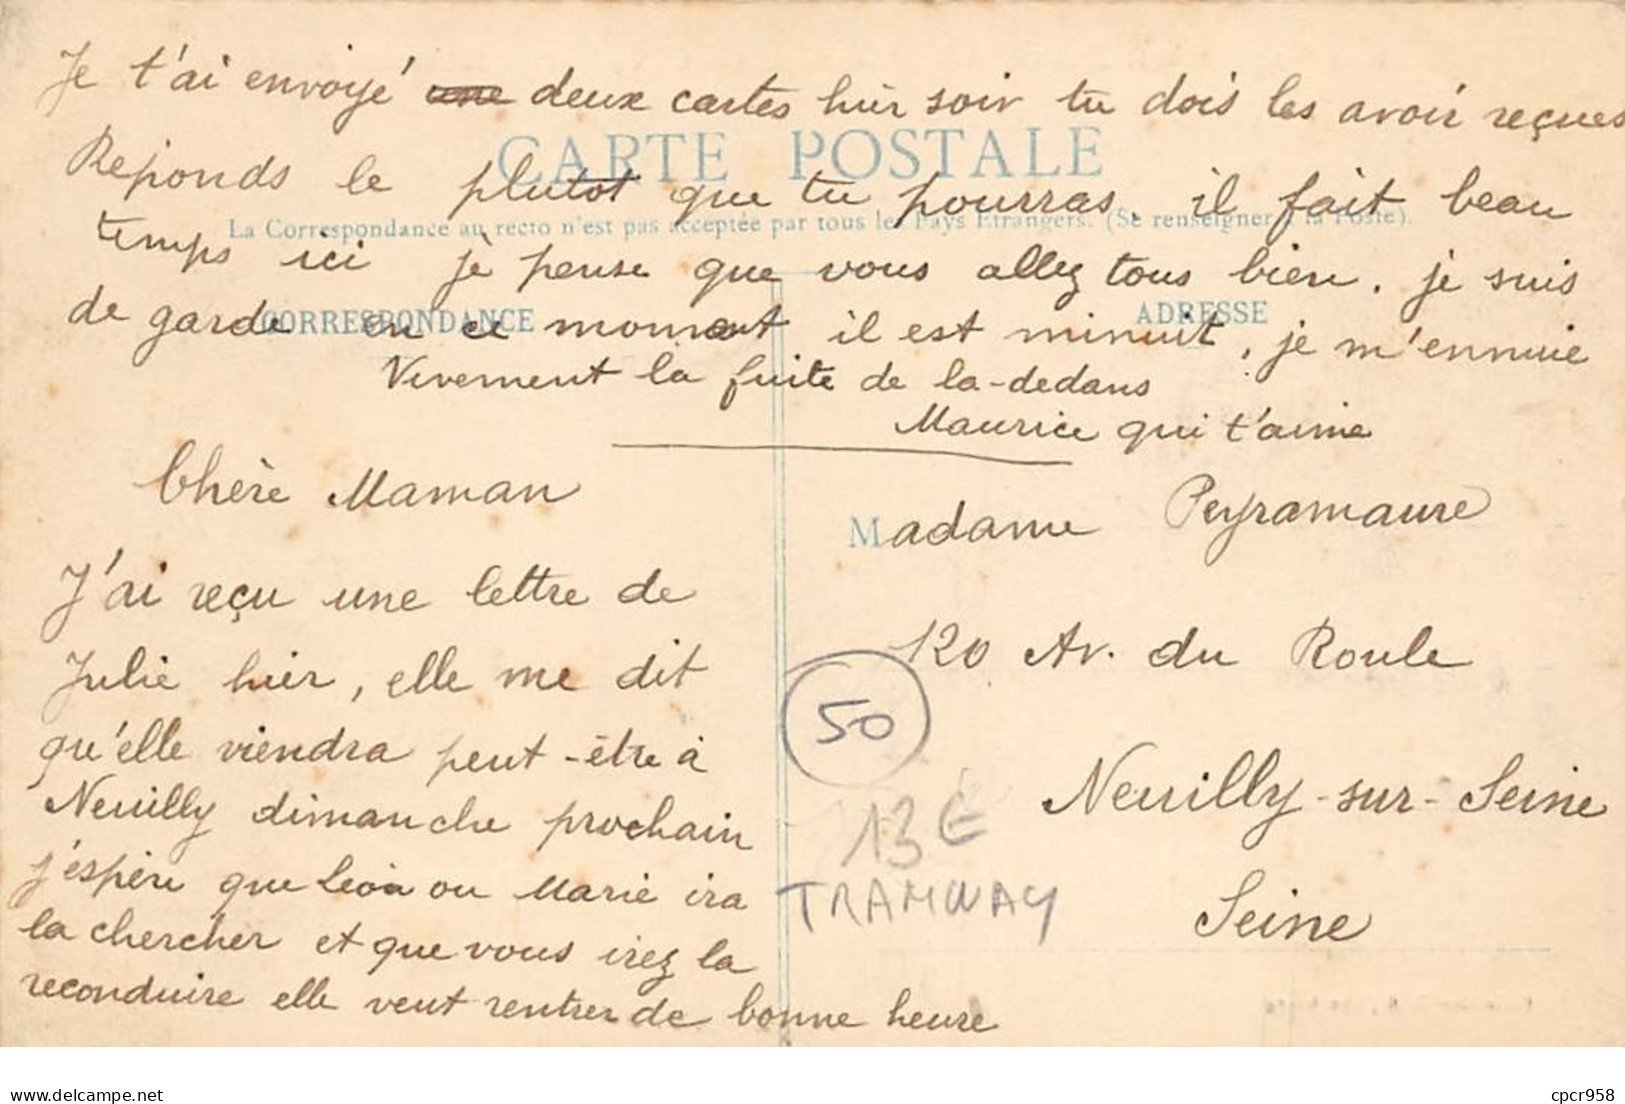 Je t'ai envoyé une deux cartes hier soir tu dois les avoir reçues
CARTE POSTALE
Reponds le plutot que tu pourras. il fait beau
La Correspondance au recto n'est pas acceptée par tous les Pays Etrangers. (Se renseigner à la Poste).
temps ici je pense que vous allez tous bien. je suis
CORRESPONDANCE
ADRESSE
de garde en ce moment il est minuit, je m'ennuie
Vivement la fuite de la-dedans
Maurice qui t'aime
Chère Maman
J'ai reçu une lettre de
Julie hier, elle me dit
qu'elle viendra peut-être à
Neuilly dimanche prochain
j'espère que ou Marie ira
la chercher et que vous irez la
reconduire elle veut rentrer de bonne heure
Madame Peyramaure
120 Av. du Roule
Neuilly-sur-Seine
Seine
50
13 €
TRAMWAY
delcampe.net
cpcr958